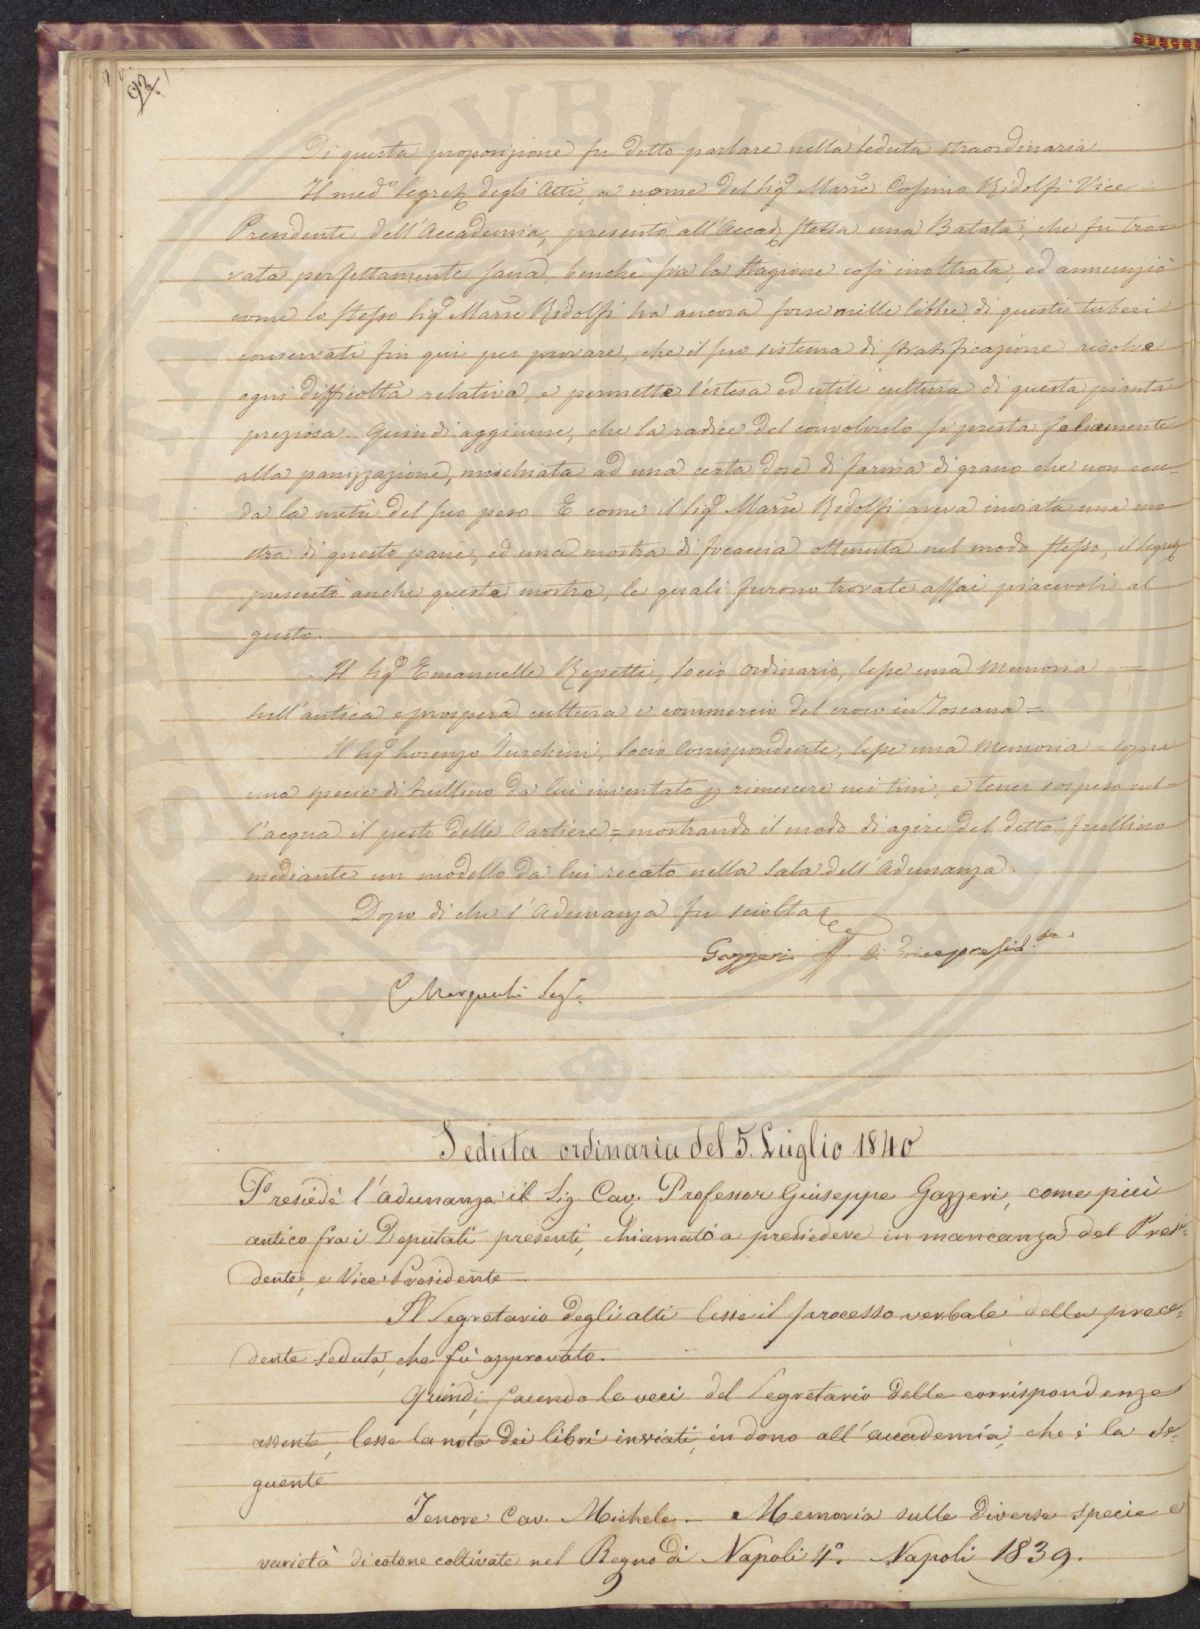 92.
Di questa proposizione fu detto parlare nella seduta straordinaria
Il med.º Segret.º degli Atti, a nome del Sig.º March.e Cosimo Ridolfi Vice
Presidente dell'Accademia, presentò all'Accad.ª stessa una Batata, che fu tro-
vata perfettamente sana, benchè sia la stagione così inoltrata, ed annunziò
come lo stesso Sig.º March.e Ridolfi ha ancora forse mille libbre di questi tuberi
conservati fin qui per provare, che il suo sistema di stratificazione risolve
ogni difficoltà relativa, e permette l'estesa ed utile cultura di questa pianta
preziosa. Quindi aggiunse, che la radice del convolvolo si presta felicemente
alla panizzazione, mischiata ad una certa dose di farina di grano che non ecce-
da la metà del suo peso. E come il Sig.º March.e Ridolfi aveva inviata una mo
stra di questo pane, ed una mostra di focaccia ottenuta nel modo stesso, il Segret.º
presentò anche queste mostre, le quali furono trovate assai piacevoli al
gusto.
Il Sig.º Emanuelle Repetti, Socio Ordinario, lesse una Memoria =
sull'antica e prospera cultura e commercio del croco in Toscana =
Il Sig.º Lorenzo Turchini, Socio Corrispondente, lesse una Memoria = sopra
una specie di frullino da lui inventato p. rimescere nei tini, e tener sospeso nel-
l'acqua il pesto delle Cartiere = mostrando il modo di agire del detto frullino
mediante un modello da lui recato nella Sala dell'Adunanza.
Dopo di che l'Adunanza fu sciolta
Gazzeri ff. di Vicepresid.te
C Marquchi Seg.º
Seduta ordinaria del 5. Luglio 1840
Presiedè l'adunanza il Sig. Cav. Professor Giuseppe Gazzeri, come più
antico fra i Deputati presenti, chiamato a presiedere in mancanza del Presi-
dente, e Vice Presidente
Il Segretario degli atti lesse il processo verbale della prece-
dente seduta, che fù approvato.
Quindi, facendo le veci del Segretario delle corrispondenze
assente, lesse la nota dei libri inviati in dono all'accademia, che è la se-
guente
Tenore Cav. Michele - Memoria sulle diverse specie e
varietà di cotone coltivate nel Regno di Napoli 4.º Napoli 1839.